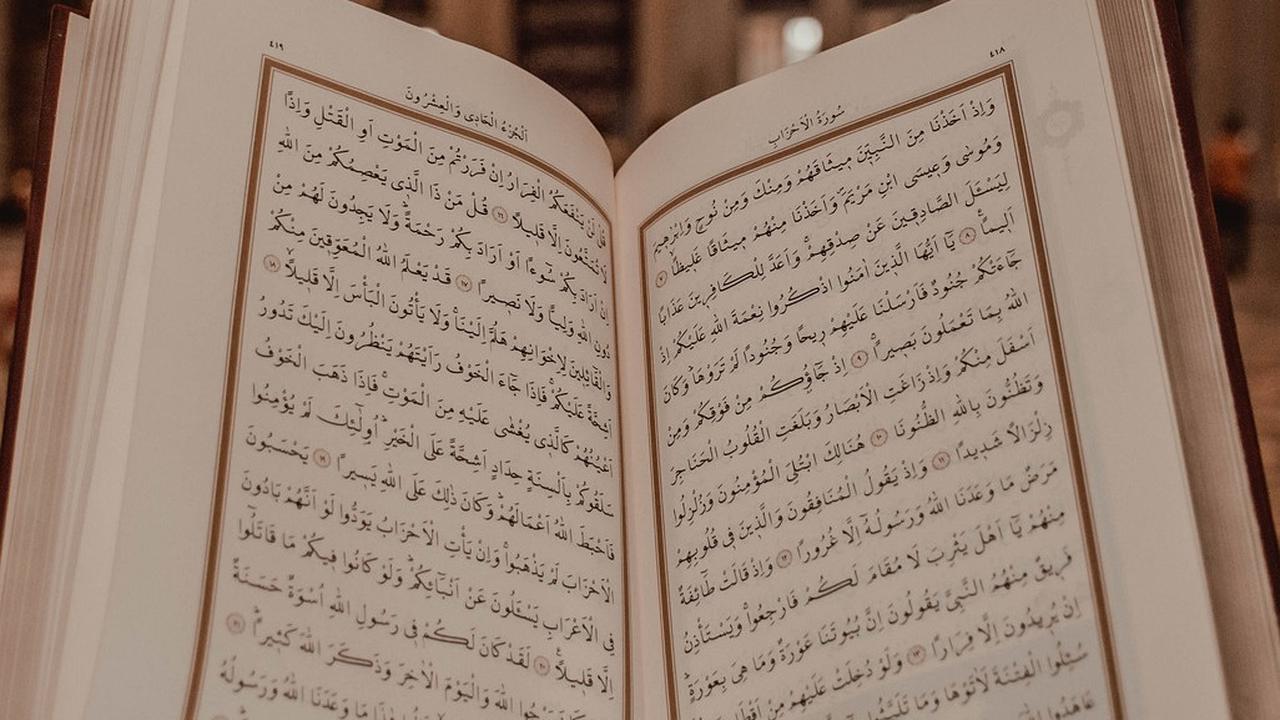 ٤١٨
سُورَةُ الْاَحْزَابِ
وَاِذْ اَخَذْنَا مِنَ النَّبِيّ۪نَ م۪يثَاقَهُمْ وَمِنْكَ وَمِنْ نُوحٍ وَاِبْرٰه۪يمَ
وَمُوسٰى وَع۪يسَى ابْنِ مَرْيَمَۖ وَاَخَذْنَا مِنْهُمْ م۪يثَاقًا غَل۪يظًاۙ ﴿٧﴾
لِيَسْـَٔلَ الصَّادِق۪ينَ عَنْ صِدْقِهِمْۚ وَاَعَدَّ لِلْكَافِر۪ينَ عَذَابًا
اَل۪يمًا۟ ﴿٨﴾ يَٓا اَيُّهَا الَّذ۪ينَ اٰمَنُوا اذْكُرُوا نِعْمَةَ اللّٰهِ عَلَيْكُمْ اِذْ
جَٓاءَتْكُمْ جُنُودٌ فَاَرْسَلْنَا عَلَيْهِمْ ر۪يحًا وَجُنُودًا لَمْ تَرَوْهَاۜ وَكَانَ
اللّٰهُ بِمَا تَعْمَلُونَ بَص۪يرًاۚ ﴿٩﴾ اِذْ جَٓاؤُ۫كُمْ مِنْ فَوْقِكُمْ وَمِنْ
اَسْفَلَ مِنْكُمْ وَاِذْ زَاغَتِ الْاَبْصَارُ وَبَلَغَتِ الْقُلُوبُ الْحَنَاجِرَ
وَتَظُنُّونَ بِاللّٰهِ الظُّنُونَا ﴿١٠﴾ هُنَالِكَ ابْتُلِيَ الْمُؤْمِنُونَ وَزُلْزِلُوا
زِلْزَالًا شَد۪يدًا ﴿١١﴾ وَاِذْ يَقُولُ الْمُنَافِقُونَ وَالَّذ۪ينَ ف۪ي قُلُوبِهِمْ
مَرَضٌ مَا وَعَدَنَا اللّٰهُ وَرَسُولُهُٓ اِلَّا غُرُورًا ﴿١٢﴾ وَاِذْ قَالَتْ طَٓائِفَةٌ
مِنْهُمْ يَٓا اَهْلَ يَثْرِبَ لَا مُقَامَ لَكُمْ فَارْجِعُواۚ وَيَسْتَأْذِنُ
فَر۪يقٌ مِنْهُمُ النَّبِيَّ يَقُولُونَ اِنَّ بُيُوتَنَا عَوْرَةٌ وَمَا هِيَ بِعَوْرَةٍۚ
اِنْ يُر۪يدُونَ اِلَّا فِرَارًا ﴿١٣﴾ وَلَوْ دُخِلَتْ عَلَيْهِمْ مِنْ
سُئِلُوا الْفِتْنَةَ لَاٰتَوْهَا وَمَا
عَاهَدُوا
٤١٩
اَلْجُزْءُ الْحَاد۪ي وَالْعِشْرُونَ
قُلْ لَنْ يَنْفَعَكُمُ الْفِرَارُ اِنْ فَرَرْتُمْ مِنَ الْمَوْتِ اَوِ الْقَتْلِ وَاِذًا
لَا تُمَتَّعُونَ اِلَّا قَل۪يلًا ﴿١٦﴾ قُلْ مَنْ ذَا الَّذ۪ي يَعْصِمُكُمْ مِنَ اللّٰهِ
اِنْ اَرَادَ بِكُمْ سُٓوءًا اَوْ اَرَادَ بِكُمْ رَحْمَةًۜ وَلَا يَجِدُونَ لَهُمْ مِنْ
دُونِ اللّٰهِ وَلِيًّا وَلَا نَص۪يرًا ﴿١٧﴾ قَدْ يَعْلَمُ اللّٰهُ الْمُعَوِّق۪ينَ مِنْكُمْ
وَالْقَٓائِل۪ينَ لِاِخْوَانِهِمْ هَلُمَّ اِلَيْنَاۚ وَلَا يَأْتُونَ الْبَأْسَ اِلَّا قَل۪يلًاۙ ﴿١٨﴾
اَشِحَّةً عَلَيْكُمْۚ فَاِذَا جَٓاءَ الْخَوْفُ رَاَيْتَهُمْ يَنْظُرُونَ اِلَيْكَ تَدُورُ
اَعْيُنُهُمْ كَالَّذ۪ي يُغْشٰى عَلَيْهِ مِنَ الْمَوْتِۚ فَاِذَا ذَهَبَ الْخَوْفُ
سَلَقُوكُمْ بِاَلْسِنَةٍ حِدَادٍ اَشِحَّةً عَلَى الْخَيْرِۜ اُو۬لٰٓئِكَ لَمْ يُؤْمِنُوا
فَاَحْبَطَ اللّٰهُ اَعْمَالَهُمْۜ وَكَانَ ذٰلِكَ عَلَى اللّٰهِ يَس۪يرًا ﴿١٩﴾ يَحْسَبُونَ
الْاَحْزَابَ لَمْ يَذْهَبُواۚ وَاِنْ يَأْتِ الْاَحْزَابُ يَوَدُّوا لَوْ اَنَّهُمْ بَادُونَ
فِي الْاَعْرَابِ يَسْـَٔلُونَ عَنْ اَنْبَٓائِكُمْۜ وَلَوْ كَانُوا ف۪يكُمْ مَا قَاتَلُٓوا
اِلَّا قَل۪يلًا۟ ﴿٢٠﴾ لَقَدْ كَانَ لَكُمْ ف۪ي رَسُولِ اللّٰهِ اُسْوَةٌ حَسَنَةٌ
اللّٰهَ وَالْيَوْمَ الْاٰخِرَ وَذَكَرَ اللّٰهَ كَث۪يرًاۜ ﴿٢١﴾
مَا وَعَدَنَا اللّٰهُ وَرَسُولُهُ